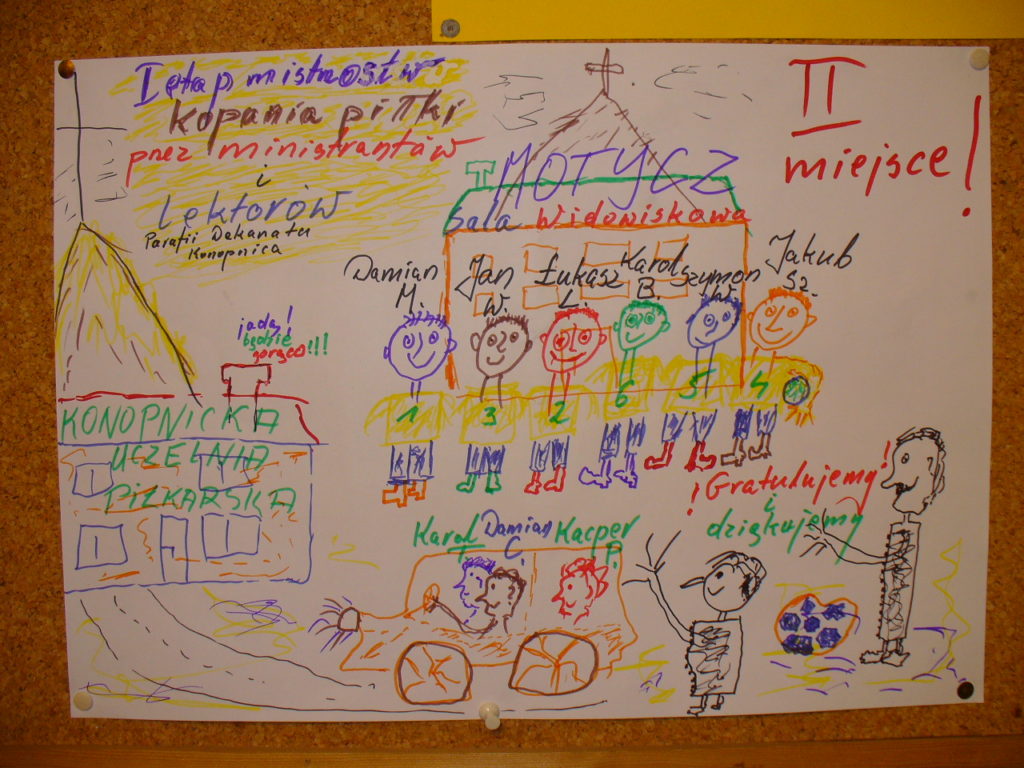 I etap mistrzostw
kopania piłki
przez ministrantów
i
Lektorów
Parafii Dekanatu
Konopnica
II
miejsce!
MOTYCZ
Sala Widowiskowa
Damian
M.
Jan
W.
Łukasz
L.
Karol
B.
Szymon
W.
Jakub
Sz.
jadą!
będzie
gorąco!!!
1 3 2 6 5 4
KONOPNICKA
UCZELNIA
PIŁKARSKA
!Gratulujemy!
i
dziękujemy
Karol
T.
Damian
C.
Kacper
P.